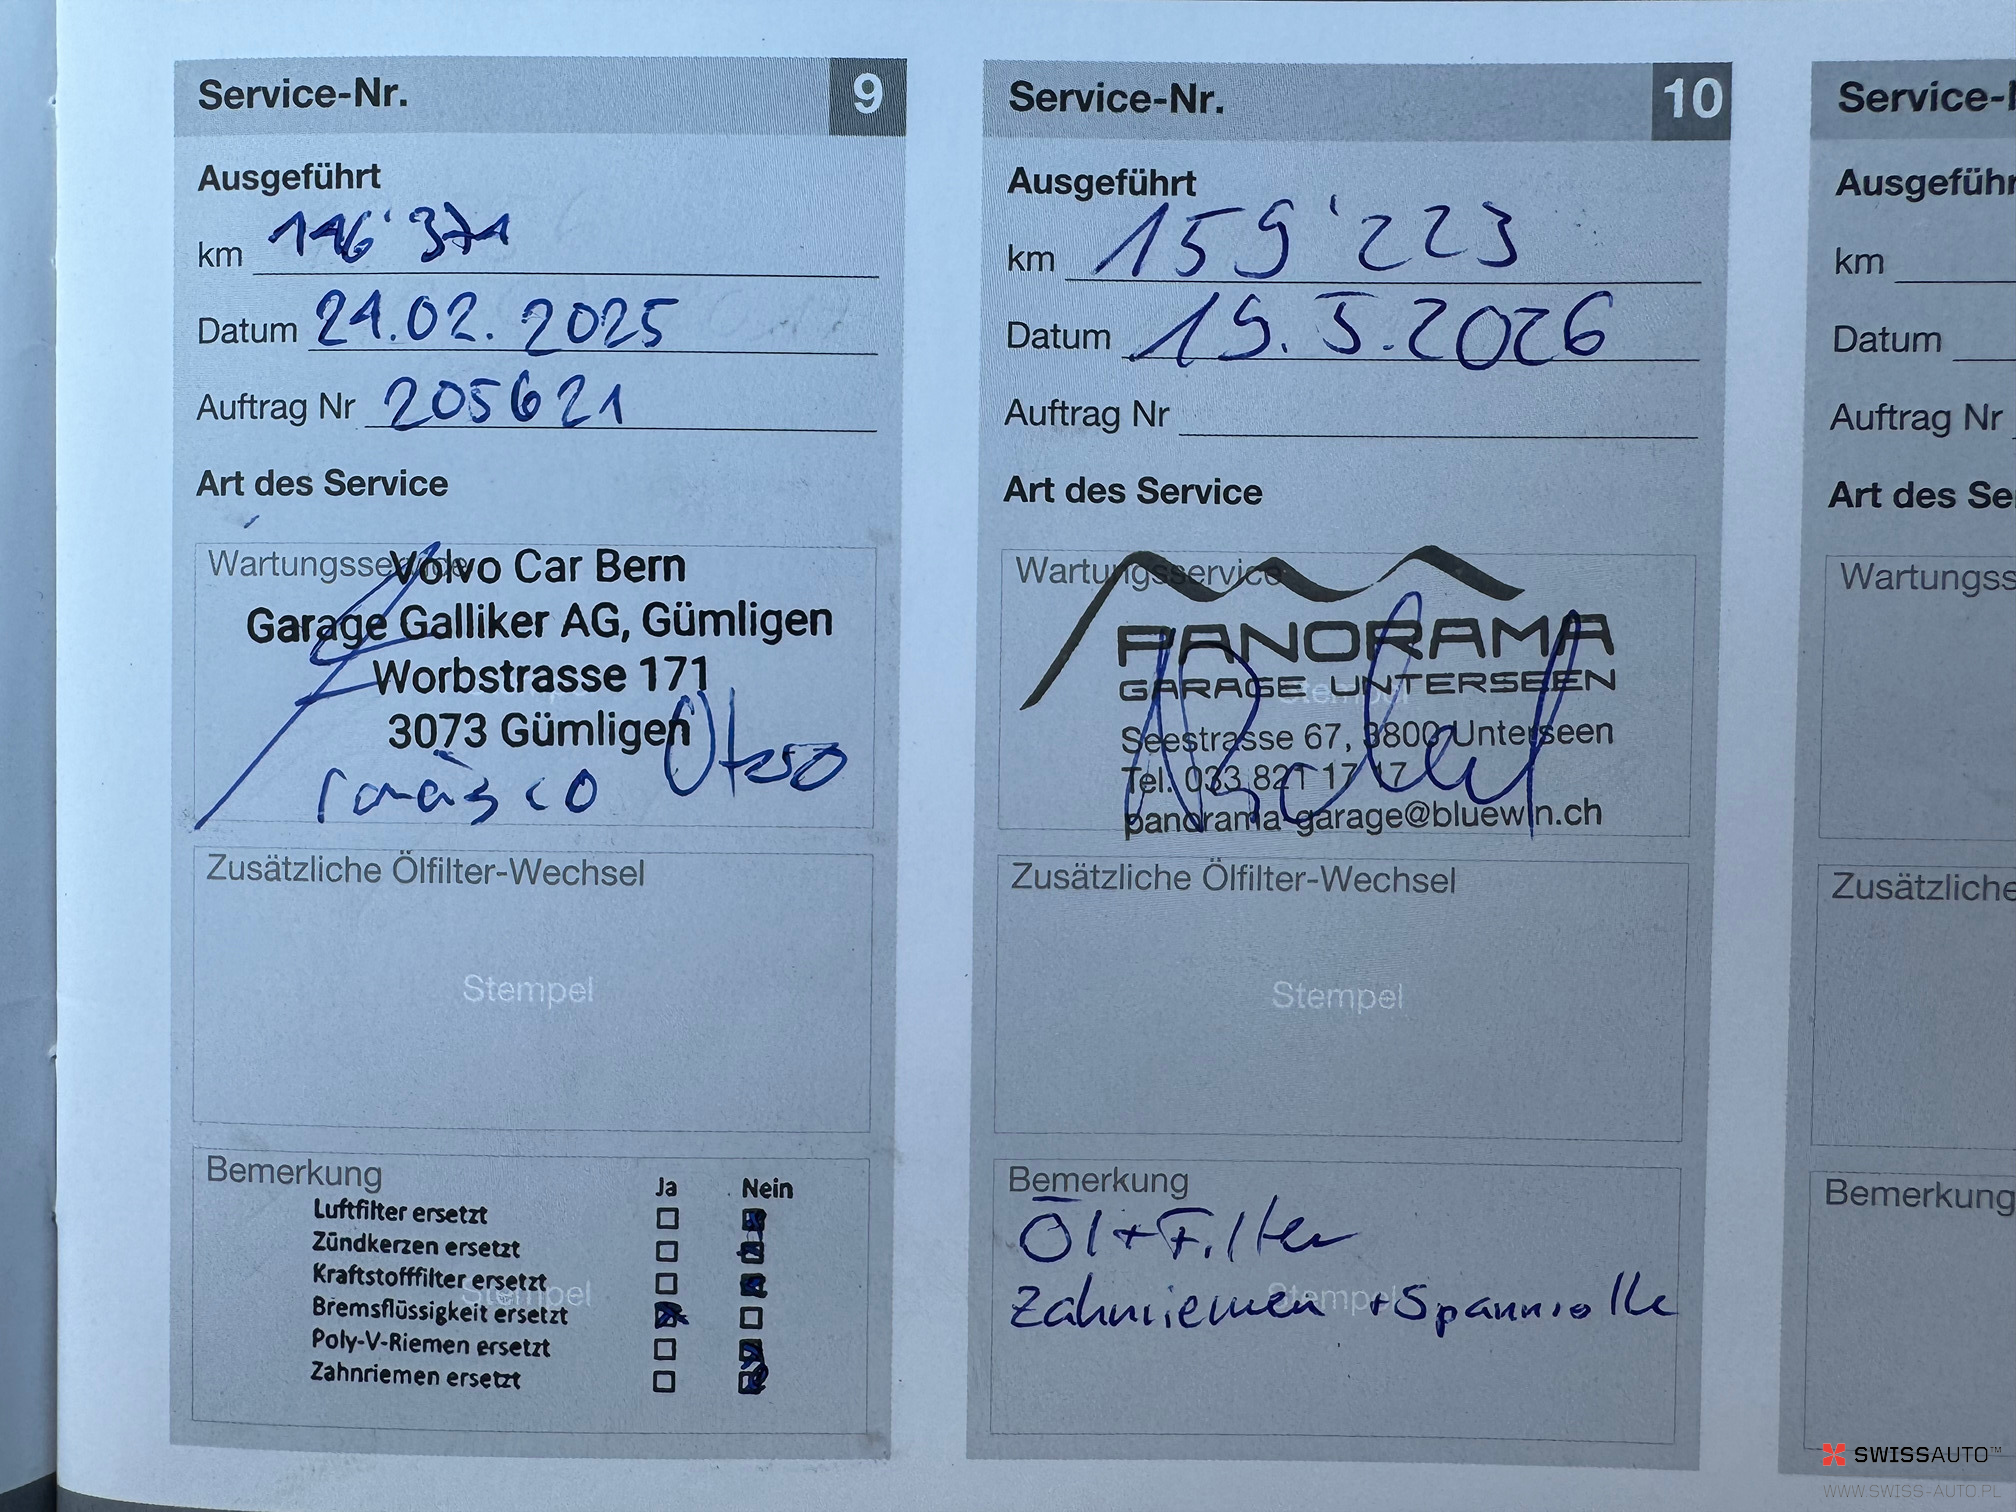 Service-Nr. 9
Ausgeführt
km 146'371
Datum 21.02.2025
Auftrag Nr 205621
Art des Service
Wartungsservice
Volvo Car Bern
Garage Galliker AG, Gümligen
Worbstrasse 171
3073 Gümligen
Zusätzliche Ölfilter-Wechsel
Stempel
Bemerkung
Ja Nein
Luftfilter ersetzt
Zündkerzen ersetzt
Kraftstofffilter ersetzt
Stempel
Bremsflüssigkeit ersetzt
Poly-V-Riemen ersetzt
Zahnriemen ersetzt
Service-Nr. 10
Ausgeführt
km 159'223
Datum 19.5.2026
Auftrag Nr
Art des Service
Wartungsservice
PANORAMA
GARAGE UNTERSEEN
Stempel
Seestrasse 67, 3800 Unterseen
Tel. 033 821 17 17
panorama-garage@bluewin.ch
Zusätzliche Ölfilter-Wechsel
Stempel
Bemerkung
Öl + Filter
Stempel
Zahnriemen + Spannrolle
Service-
Ausgeführ
km
Datum
Auftrag Nr
Art des Se
Wartungss
Zusätzliche
Bemerkung
SWISSAUTO™
WWW.SWISS-AUTO.PL